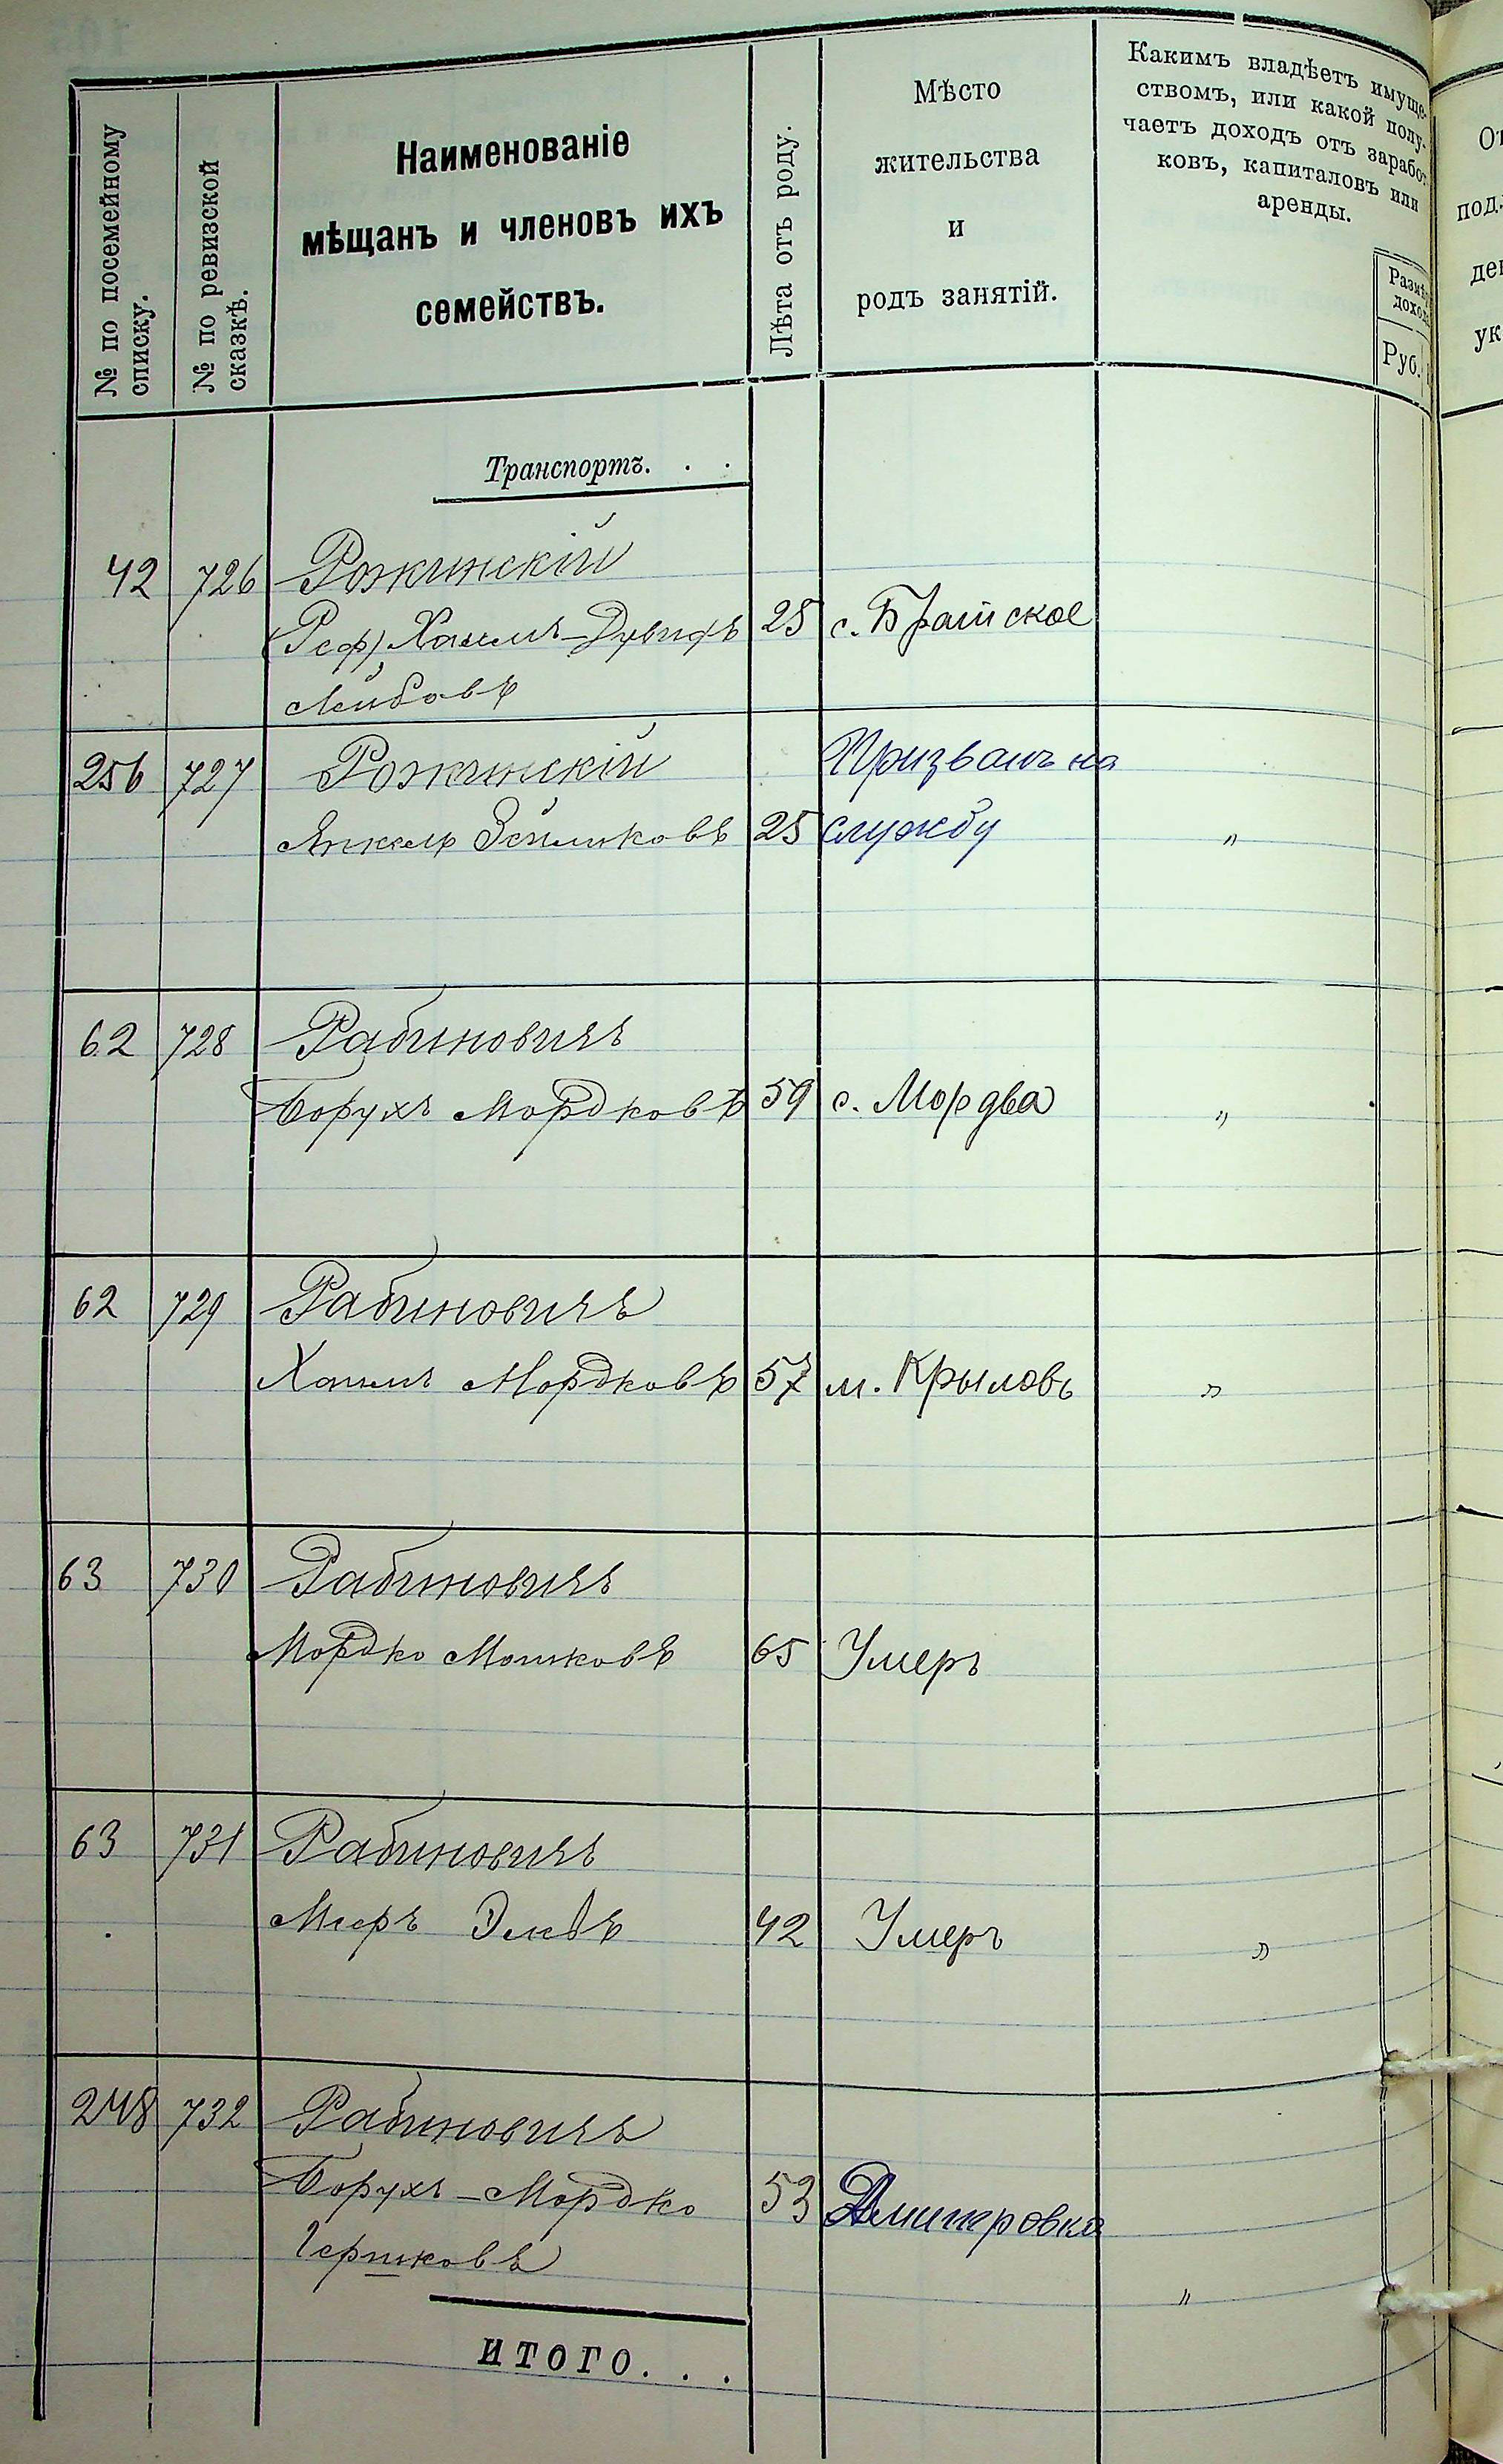 № по посемейному
списку.
№ по ревизской
сказкѣ.
Наименованіе
мѣщанъ и членовъ ихъ
семействъ.
Лѣта отъ роду.
Мѣсто
жительства
и
родъ занятій.
Какимъ владѣетъ имуще-
ствомъ, или какой полу-
чаетъ доходъ отъ заработ-
ковъ, капиталовъ или
аренды.
Руб.
Транспортъ. . .
42 726 Рожинскій
Хаимъ-Дувидъ 25 с. Брайское
Лейбовъ
256 727 Рожинскій Призванъ на
Янкель 25 службу "
62 728 Рабиновичъ
Борухъ Мордковъ 59 с. Мордва "
62 729 Рабиновичъ
Хаимъ Мордковъ 57 м. Крыловъ "
63 730 Рабиновичъ
Мордко Мошковъ 65 Умеръ
63 731 Рабиновичъ
Мееръ 42 Умеръ "
248 732 Рабиновичъ
Борухъ-Мордко 53 Дмитровка
Гершковъ "
ИТОГО. . .